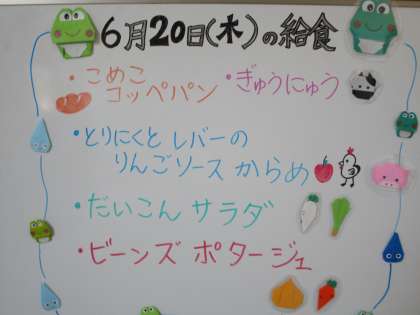 6月20日(木)の給食
・こめこ ・ぎゅうにゅう
コッペパン
・とりにくと レバーの
りんごソース からめ
・だいこん サラダ
・ビーンズ ポタージュ